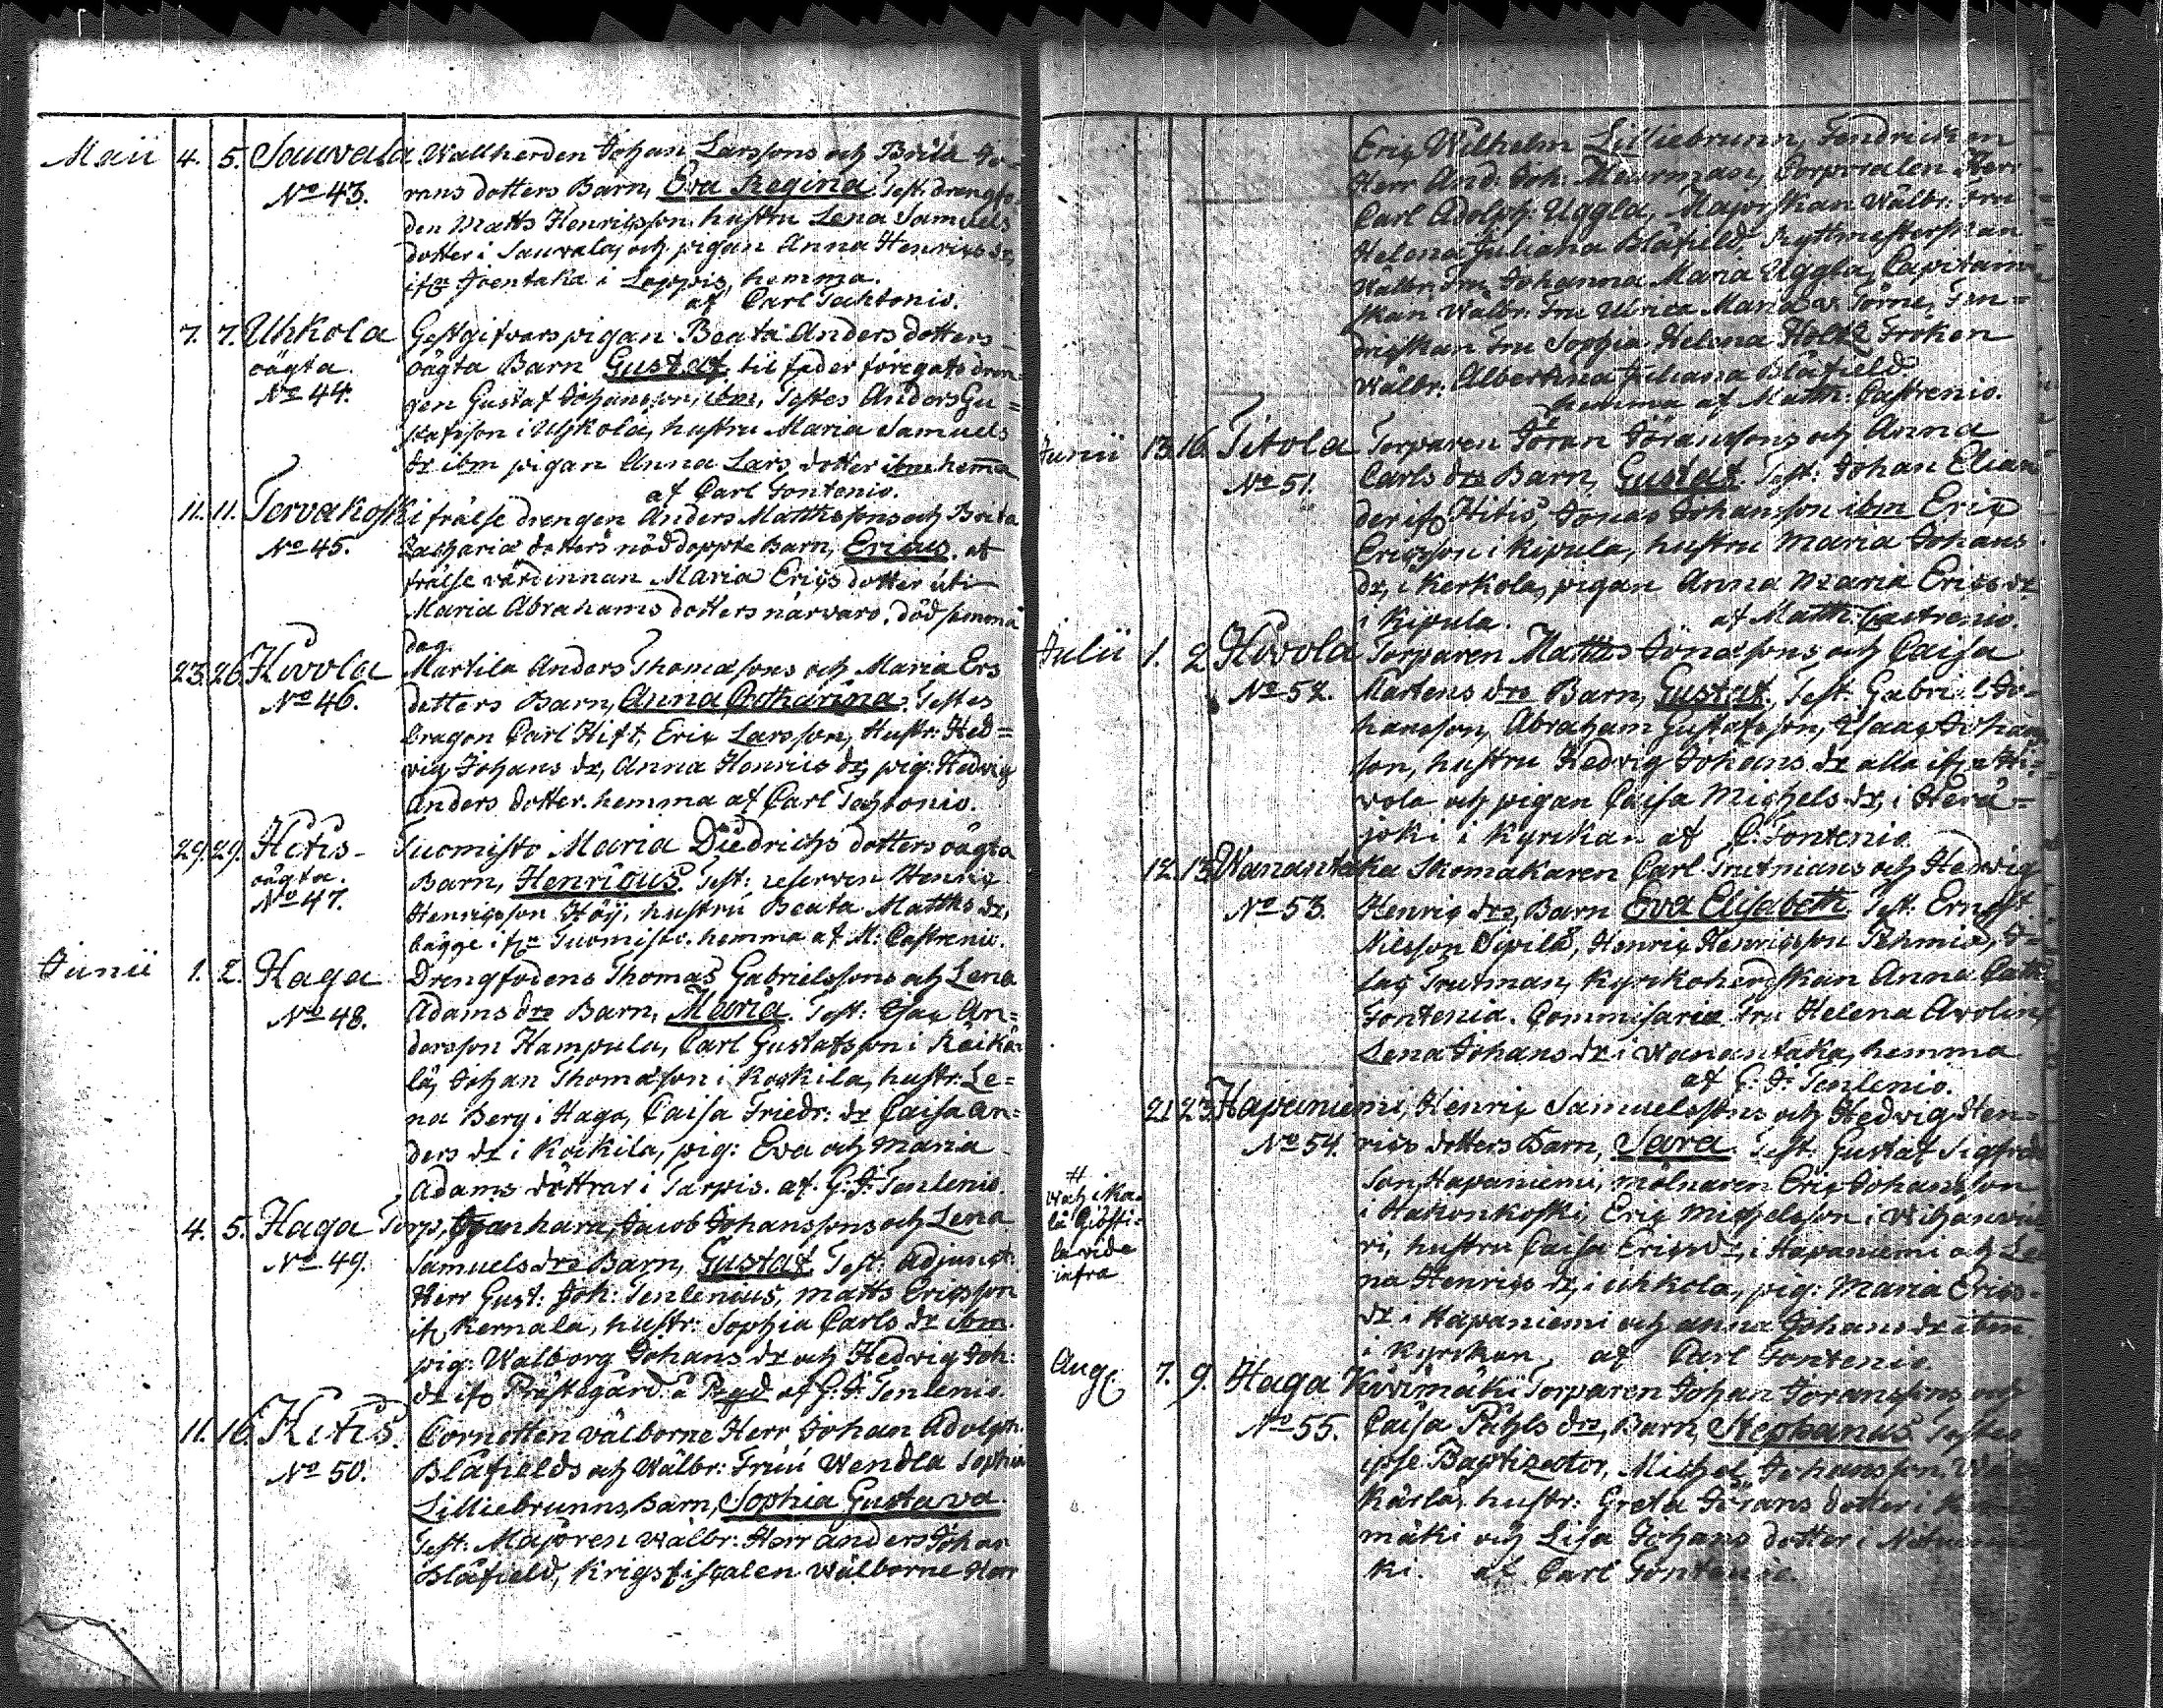 Maii 4. 5. Sauvala Wallherden Johan Larssons och Brita Jö-
No 43. rans dotters Barn, Eva Regina. Test. drengfo
den Matts Henricsson hustru Lena Samuels
dotter i Sauvala, och pigan Anna Henrics dr,
ifrn Joentaka i Loppis, hemma.
af Carl Fontenio.
7. 7. Uhkola Gestgifvars pigan Beata Anders dotters
oägta. oägta Barn Gustaf, til fader föregafs dren-
No 44. gen Gustaf Johansson, ibm, Testes Anders Gu=
stafsson i Uhkola, hustru Maria Samuels
dr ibm pigan Anna Lars dotter ibm hemma
af Carl Fontenio.
11. 11. Tervakoski frälse drengen Anders Matthssons och Brita
No 45. Zachariæ dotters nöddöpte Barn, Ericus. af
frälse värdinnan Maria Erics dotter uti
Maria Abrahams dotters närvaro. död samma
dag.
23. 26. Hivola Martila Anders Thomæsons och Maria Ers
No 46. dotters Barn, Anna Catharina. Testes
Dragon Carl Hift, Eric Larsson, Hustr: Hed=
vig Johans dr, Anna Henrics dr, pig: Hedvig
Anders dotter. hemma af Carl Fontenio.
29. 29. Hitis- Tuomisto Maria Diedrichs dotters oägta
oägta. Barn, Henricus. Test: reserven Henric
No 47. Henricsson Höij, hustru Beata Matths dr,
bägge ifrn Tuomisto. hemma af M: Castrenio.
Junii 1. 2. Haga Drengfodens Thomas Gabrielssons och Lena
No 48. Adams drs Barn, Maria. Test: Isac An=
dersson Hampula, Carl Gustafsson i Räikä
lä, Johan Thomæson i Kockila, hustr: Le=
na Berg i Haga, Caisa Friedr: dr Caisa An=
ders dr i Kockila, pig: Eva och Maria
Adams döttrar i Tarpis. af G: J: Tenlenio.
4. 5. Haga Torp, Janhara, Jacob Johanssons och Lena
No 49. Samuels drs Barn, Gustaf. Test: Adjunct:
Herr Gust: Joh: Tenlenius, Matts Ericsson
ifr Kernala, hustr: Sophia Carls dr ibm.
pig: Walborg Johans dr och Hedvig Joh:
dr ifr Prästegård. å Pregd af G: J: Tenlenio.
11. 16. Hitis. Cornetten välborne Herr Johan Adolph
No 50. Blåfields och Wälbr: Fruu Wendla Sophia
Lilliebrunns, Barn, Sophia Gustava
Test: Majoren Wälbr: Herr Anders Johan
Blåfield, Krigsfiscalen Wälborne Herr
Eric Wilhelm Lilliebrunn, Fendricken
Herr And: Joh: Meurman, Corporalen Herr
Carl Adolph: Uggla, Majorskan Wälbr: Fru
Helena Juliana Blåfield, Ryttmesterskan
Wälbr: Fru Johanna Maria Uggla, Capitain
skan Wälbr: Fru Ulrica Maria v. Törne, Fen=
drichskan Fru Sophia Helena Holtz Fröken
Wälbr: Albertina Juliana Blåfield
hemma af Matth: Castrenio.
Junii 13. 16. Titola Torparen Jöran Jöranssons och Anna
No 51. Carls drs Barn, Gustaf. Test: Johan Elian
der ifr Hitis, Jonas Johansson ibm Eric
Ericsson i Kipula, hustru Maria Johans
dr, i Kerkola, pigan Anna Maria Erics dr
i Kipula. af Matth. Castrenio.
Julii 1. 2. Hivola Torparen Matths Jönæsons och Caisa
No 52. Martens drs Barn, Gustaf, Test: Gabriel Jo-
hansson, Abraham Gustafsson, Isaac Johans
son, hustru Hedvig Johans dr alla ifrn Hi-
vola och pigan Caisa Michels dr, i Herä=
joki i Kyrckan af C: Fontenio.
12. 13. Wanantaka Skomakaren Carl Trutmans och Hedvig
No 53. Henrics drs, Barn Eva Elisabeth. Test: Ernst
Nilsson Sipilä, Henric Henricsson Rehmis, I-
sac Trutman, Kyrkoherdskan Anna Cath:
Fontenia. Commisarie Fru Helena Avolin,
Lena Johans dr i Wanantaka, hemma
af G: J: Tenlenio.
21. 23. Hapaniemi, Henric Samuelssons och Hedvig Hen-
No 54. rics dotters Barn, Sara. Test: Gustaf Sigfreds
son, Hapaniemi, mölnaren Eric Johansson
i Hakonkoski, Eric Michelsson i
ri, hustru Caisa Erics dr, i Hapaniemi och Le
na Henrics dr, i Uhkola, pig: Maria Erics-
dr i Hapaniemi och Anna Johans dr ibm.
i Kyrckan, af Carl Fontenio.
la vide
infra
Aug: 7. 9. Haga Kivimäki Torparen Johan Göranssons och
No 55. Caisa Påhls drs, Barn, Stephanus Testes
ipse Baptizator, Michel Johansson
Kärlä, hustr: Greta Jörans dotter i Kivi
mäki och Lisa Johans dotter i
ki. af Carl Fontenio.